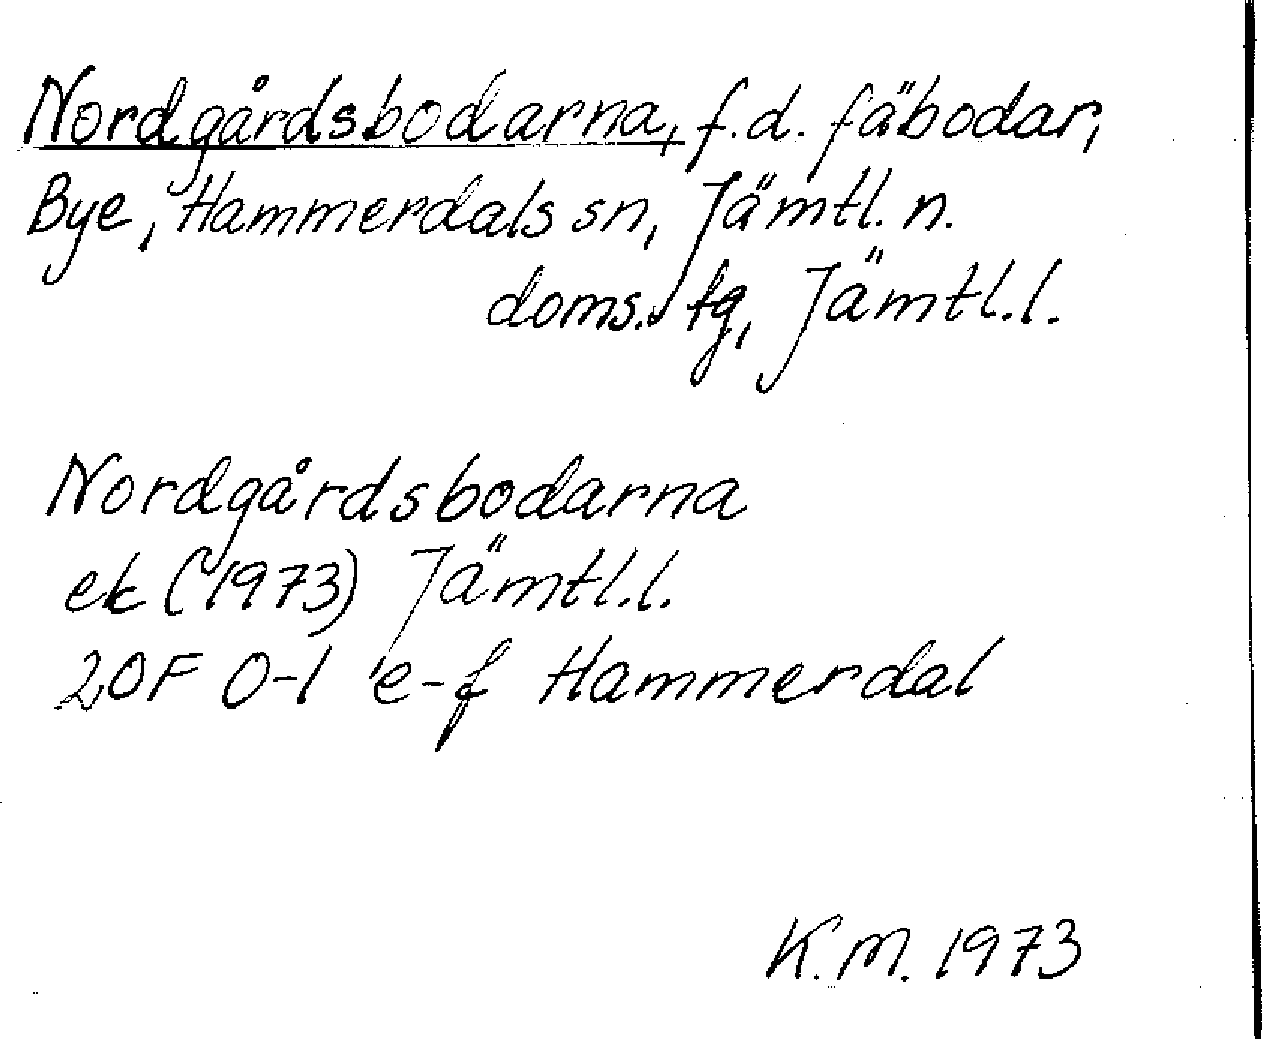 Nordgårdsbodarna, f.d. fäbodar,
Bye, Hammerdals sn, Jämtl. n.
doms. tg, Jämtl.l.
Nordgårdsbodarna
ek (1973) Jämtl.l.
20F 0-1 e-f Hammerdal
K.M. 1973